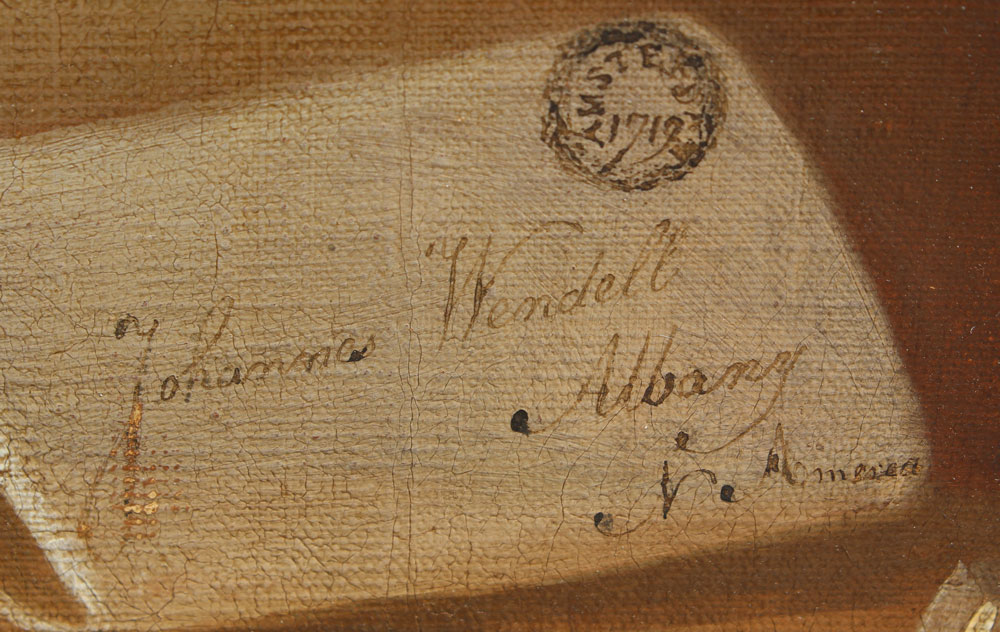 AMSTERDAM
1719
Johannes Wendell
Albany
N. America